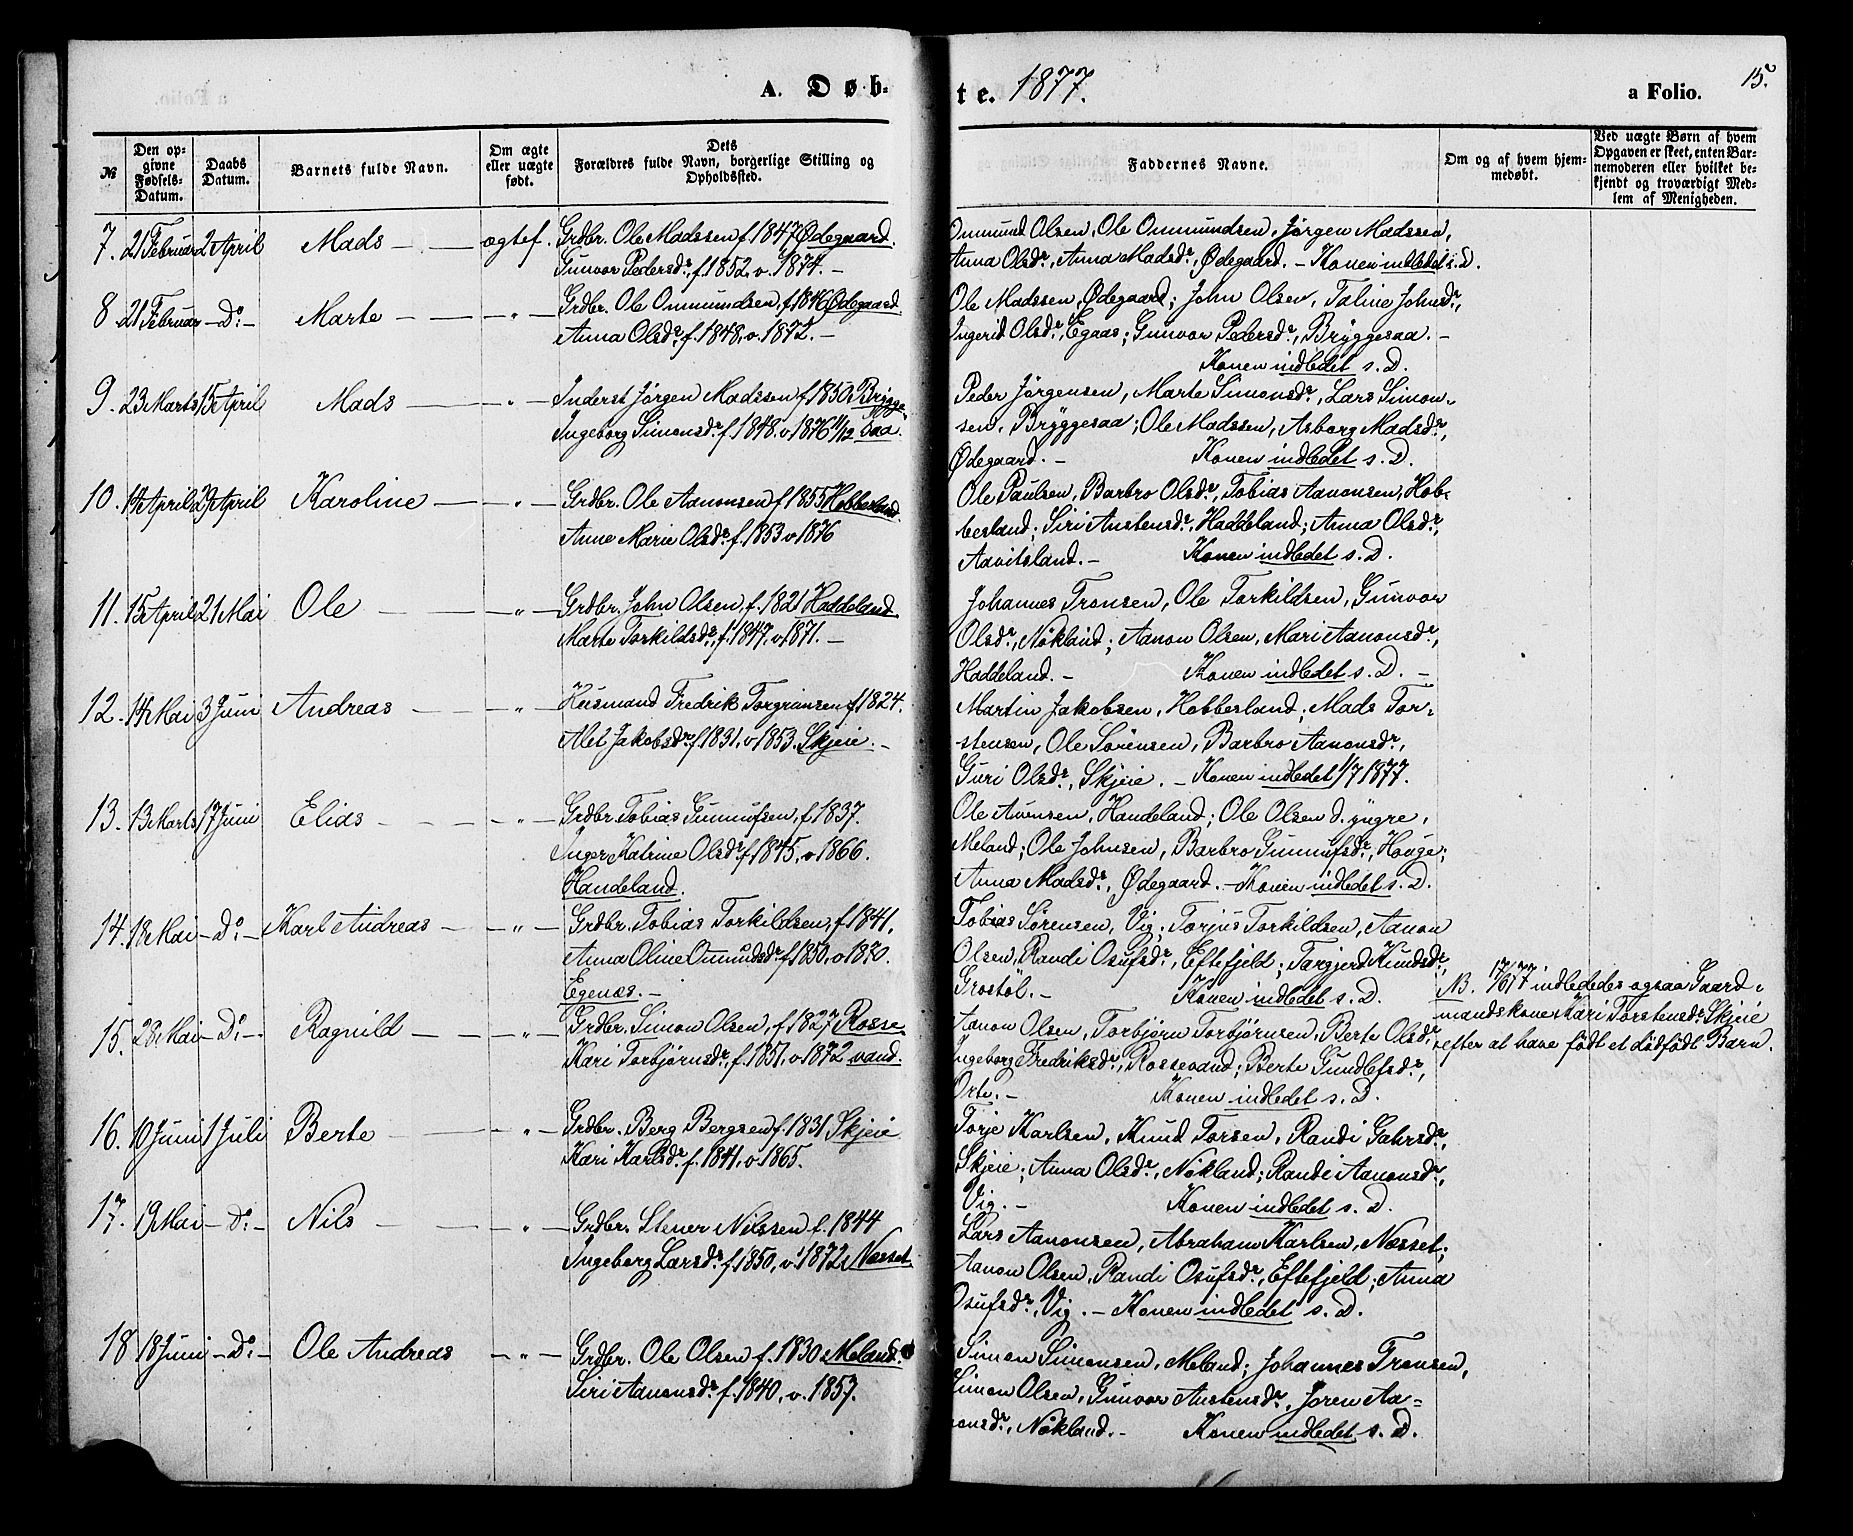 A. Døb-
te. 1877.
a Folio. 15.
№
Den op-
givne
Fødsels-
Datum.
Daabs
Datum.
Barnets fulde Navn.
Om ægte
eller uægte
født.
Dets
Forældres fulde Navn, borgerlige Stilling og
Opholdssted.
Faddernes Navne.
Om og af hvem hjem-
medøbt.
Ved uægte Børn af hvem
Opgaven er skeet, enten Bar-
nemoderen eller hvilket be-
kjendt og troværdigt Med-
lem af Menigheden.
7. 21 Februar 2 April Mads — ægtef. Grdbr. Ole Madssen f. 1847, Ødegaard.
Gunvor Pedersdr., f. 1852, v. 1874. —
Onmund Olsen, Ole Onmundsen, Jørgen Madssen,
Anna Olsdr., Anna Madsdr., Ødegaard. — Konen indledet s. D.
8. 21 Februar — Do: — Marte — „ — Grdbr. Ole Onmundsen, f. 1846 Ødegaard.
Anna Olsdr. f. 1848, v. 1872. —
Ole Madssen, Ødegaard; John Olsen, Taline Johnsdr.,
Ingerid Olsdr., Egaas; Gunvor Pedersdr., Bryggesaa. —
Konen indledet s. D.
9. 23 Marts 15 April Mads — „ — Inderst Jørgen Madssen f. 1850 Brygge-
Ingeborg Simonsdr. f. 1848. v. 1876 11/12 saa.
Peder Jørgensen, Marte Simonsdr., Lars Simon-
sen, Bryggesaa; Ole Madssen, Asborg Madsdr.,
Ødegaard. — Konen indledet s. D.
10. 14 April 29 April Karoline — „ — Grdbr. Ole Aanonsen f. 1855 Hobbesland.
Anne Marie Olsdr. f. 1853 v. 1876
Ole Paulsen, Barbro Olsdr., Tobias Aanonsen, Hob-
besland; Siri Austensdr., Haddeland; Anna Olsdr.,
Aavitsland. — Konen indledet s. D.
11. 15 April 21 Mai Ole — „ — Grdbr. John Olsen, f. 1821 Haddeland
Marte Torkildsdr., f. 1847. v. 1871. —
Johannes Tronsen, Ole Torkildsen, Gunvor
Olsdr., Nökland; Aanon Olsen, Mari Aanonsdr.,
Haddeland. — Konen indledet s. D. —
12. 14 Mai 3 Juni Andreas — „ — Husmand Fredrik Torgrimsen f. 1824.
Alet Jakobsdr. f. 1831, v. 1853. Skjeie. —
Martin Jakobsen, Hobbesland; Mads Tor-
stensen, Ole Sörensen, Barbro Aanonsdr.,
Guri Olsdr., Skjeie. — Konen indledet 1/7 1877.
13. 13 Marts 17 Juni Elias — „ — Grdbr. Tobias Gunnufsen, f. 1837.
Inger Katrine Olsdr. f. 1845, v. 1866.
Handeland.
Ole Avensen, Handeland; Ole Olsen d. yngre,
Meland; Ole Johnsen, Barbro Gunnufsdr., Houge;
Anna Madsdr., Ødegaard. — Konen indledet s. D.
14. 18 Mai — Do: — Karl Andreas — „ — Grdbr. Tobias Torkildsen, f. 1841.
Anna Oline Omundsdr. f. 1850, v. 1870.
Egenæs. —
Tobias Sörensen, Vig; Torjus Torkildsen, Aanon
Olsen, Randi Osufsdr., Eftefjeld; Targjerd Knudsdr.,
Grostöl. — Konen indledet s. D.
15. 28 Mai — Do: — Ragnild — „ — Grdbr. Simon Olsen, f. 1827 Rosse-
Kari Torbjörnsdr., f. 1851, v. 1872 vand.
Aanon Olsen, Torbjörn Torbjörnsen, Berte Olsdr.,
Ingeborg Fredriksdr., Rossevand; Berte Gundlefsdr.,
Orte. — Konen indledet s. D.
NB. 17/6 77 indlededes ogsaa Gaard-
mandskone Kari Torstensdr. Skjeie
efter at have födt et dödfödt Barn.
16. 10 Juni 1 Juli Berte — „ — Grdbr. Berg Bergsen f. 1831 Skjeie
Kari Karlsdr. f. 1841, v. 1865.
Torje Karlsen, Knud Torsen, Randi Gahrsdr.,
Skjeie; Anna Olsdr., Nökland; Randi Aanonsdr.,
Vig. — Konen indledet s. D.
17. 19 Mai — Do: — Nils — „ — Grdbr. Stener Nilssen f. 1844
Ingeborg Larsdr. f. 1850, v. 1872, Næsset.
Lars Aanonsen, Abraham Karlsen, Næsset;
Aanon Olsen, Randi Osufsdr., Eftefjeld; Anna
Osufsdr., Vig. — Konen indledet s. D.
18. 18 Juni — Do: — Ole Andreas — „ — Grdbr. Ole Olsen f. 1830 Meland.
Siri Aanonsdr. f. 1840, v. 1857.
Simon Simonsen, Meland; Johannes Tronsen,
Simon Olsen, Gunvor Austensdr., Joren Aa-
nonsdr., Nökland. — Konen indledet s. D.